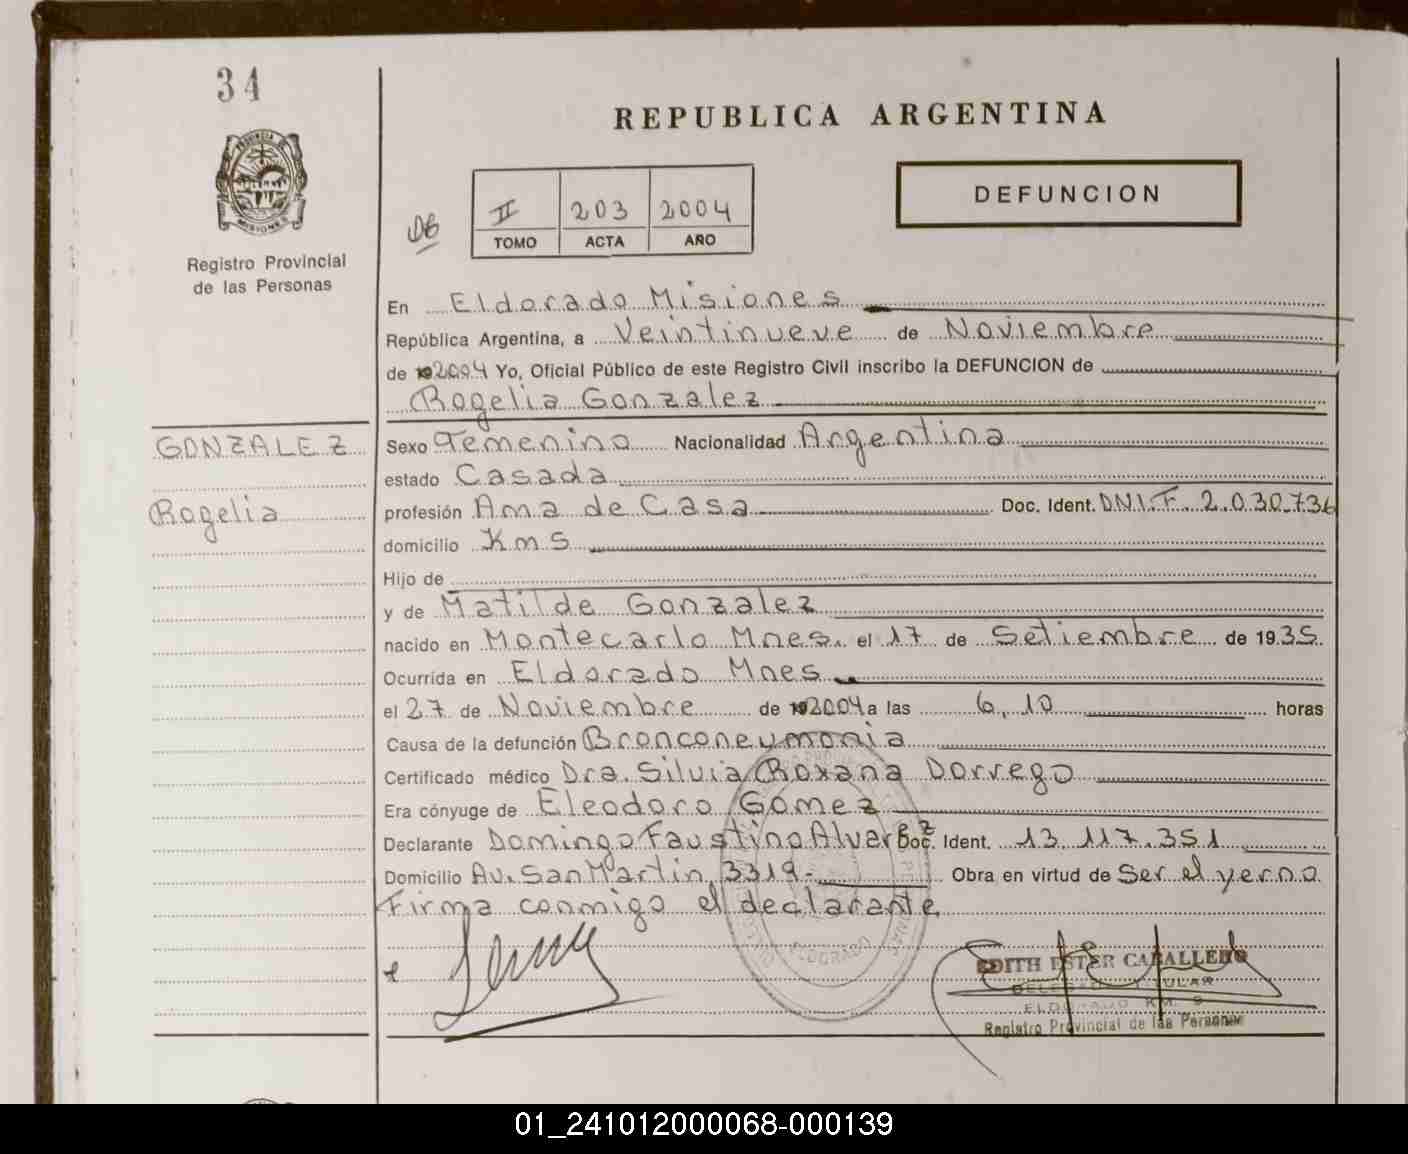 34
REPUBLICA ARGENTINA
PROVINCIA DE
MISIONES
Registro Provincial
de las Personas
DB
II 203 2004
TOMO ACTA AÑO
DEFUNCION
En Eldorado Misiones
República Argentina, a Veintinueve de Noviembre
de 2004 Yo, Oficial Público de este Registro Civil inscribo la DEFUNCION de
Rogelia Gonzalez
GONZALEZ
Rogelia
Sexo Femenino Nacionalidad Argentina
estado Casada
profesión Ama de Casa Doc. Ident. DNI.F. 2.030.736
domicilio Km 5
Hijo de
y de Matilde Gonzalez
nacido en Montecarlo Mnes. el 17 de Setiembre de 1935.
Ocurrida en Eldorado Mnes
el 27 de Noviembre de 2004 a las 6,10 horas
Causa de la defunción Bronconeumonia
Certificado médico Dra. Silvia Roxana Dorrego
Era cónyuge de Eleodoro Gomez
Declarante Domingo Faustino Alvarez Doc. Ident. 13.117.351
Domicilio Av. San Martin 3319- Obra en virtud de Ser el yerno
Firma conmigo el declarante
ELDORADO
EDITH ESTER CABALLERO
DELEGADA TITULAR
ELDORADO KM. 9
Registro Provincial de las Personas
01_241012000068-000139